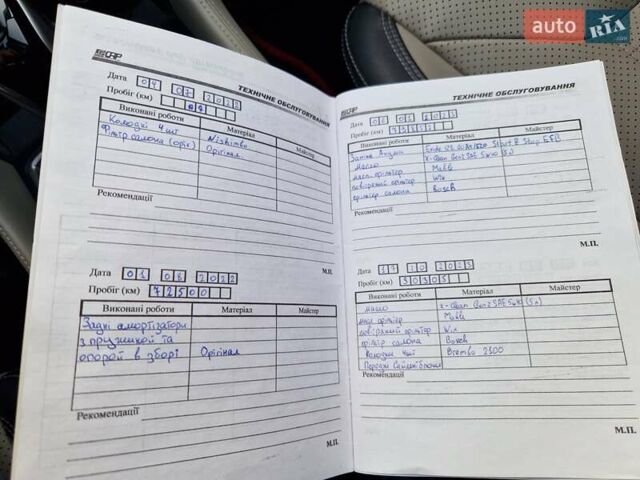 auto RIA.com
SCAR
ТЕХНІЧНЕ ОБСЛУГОВУВАННЯ
Дата 07 07 2022
Пробіг (км)
Виконані роботи Матеріал Майстер
Колодкі 4 шт Nishinbo
Фільтр салона (оріг) Оригінал
Рекомендації
М.П.
Дата 01 08 2022
Пробіг (км) 72500
Виконані роботи Матеріал Майстер
Задні амортизатори
з пружинкой та
опорой в зборі Оригінал
Рекомендації
М.П.
ТЕХНІЧНЕ ОБСЛУГОВУВАННЯ
Дата 2023
Пробіг (км)
Виконані роботи Матеріал Майстер
Заміна Start & Stop EFB
масло X-clean 5W30 5л
масл фільтр Mahle
повітряний фільтр Wix
фільтр салона Bosch
Рекомендації
М.П.
Дата 17 10 2023
Пробіг (км) 90305
Виконані роботи Матеріал Майстер
масло x-clean (5л)
масл фільтр Mahle
повітряний фільтр Wix
фільтр салона Bosch
Колодки Brembo
Передні Сайлентблоки
Рекомендації
М.П.